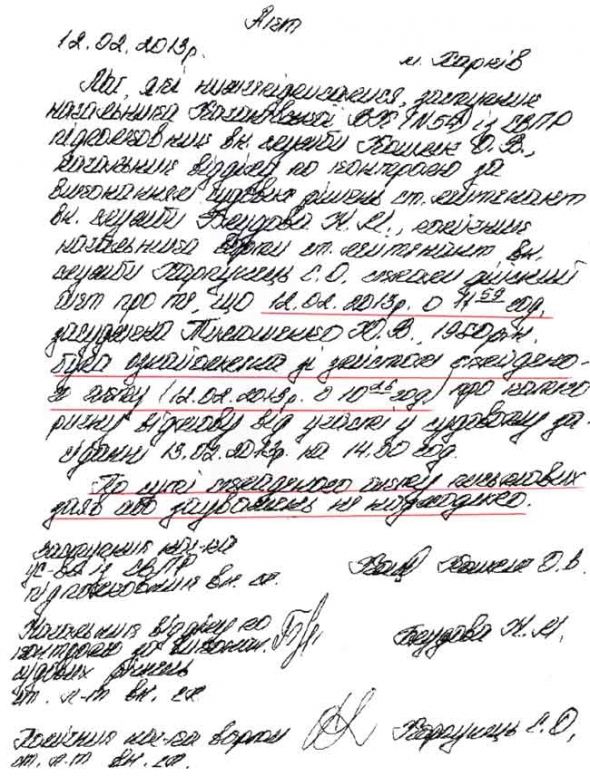 Акт
12.02.2013р. м. Харків
Ми, які нижчепідписалися, заступник
начальника Качанівської ВК (№54) із СВПР
підполковник вн. служби Ю.В.,
начальник відділу по контролю за
виконанням судових рішень ст. лейтенант
вн. служби Н.М., помічник
начальника варти ст. лейтенант вн.
служби Є.О. склали дійсний
акт про те, що 12.02.2013р. о 11 59 год,
засуджена Тимошенко Ю.В., 1960р.н.
була ознайомлена зі змістом складено-
го акту (12.02.2013р. о 10 год) про
відмову від участі у судовому за-
сіданні 13.02.2013р. на 14.00 год.
По суті складеного акту письмових
заяв або зауважень не надходило.
заступник нач-ка
із СВПР
підполковник вн. сл. В.
Начальник відділу по
контролю за викон. Н.М.
судових рішень
ст. л-т вн. сл.
Помічник нач-ка варти Є.О.
ст. л-т вн. сл.